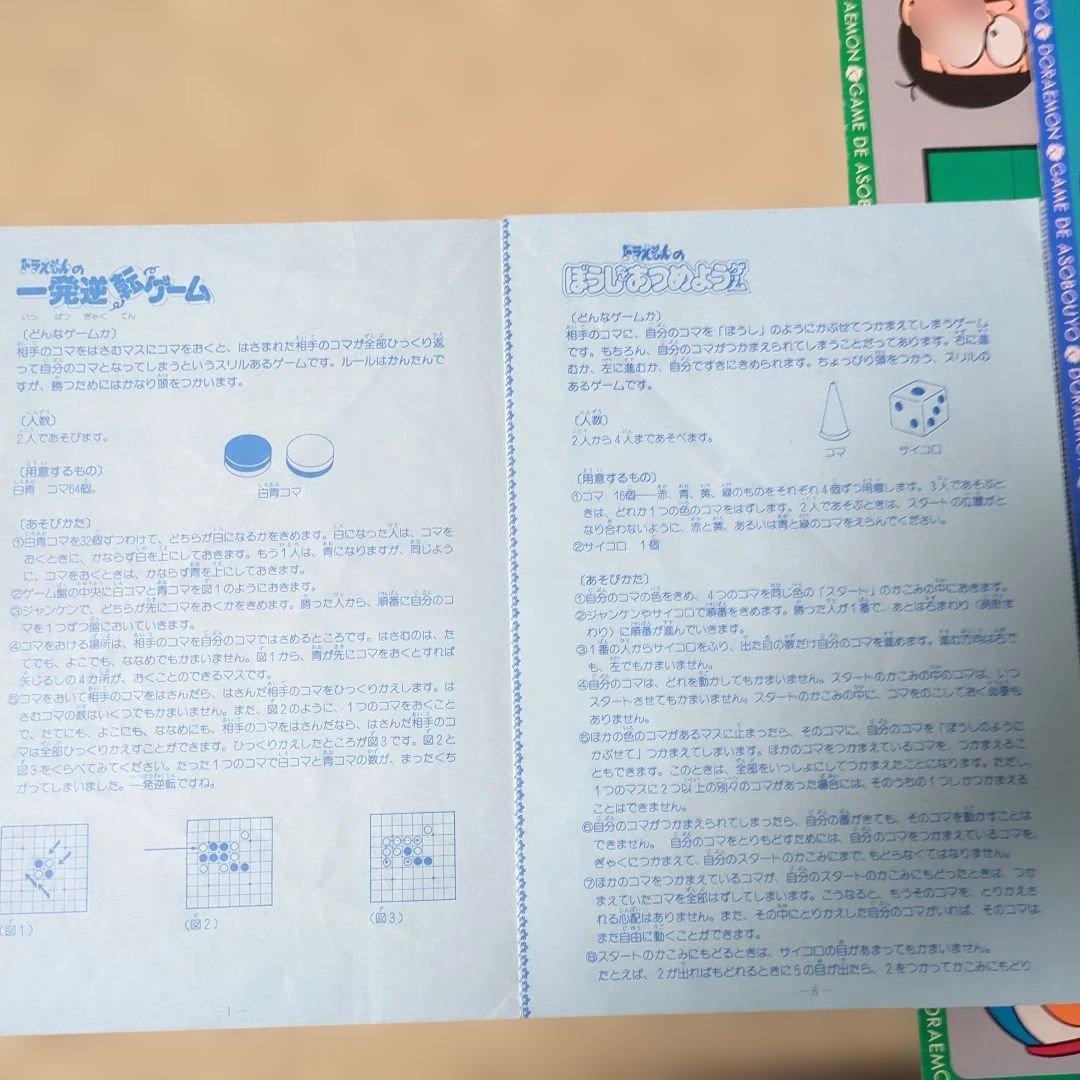 ドラえもんの
一発逆転ゲーム
いっ ぱつ ぎゃく てん
〔どんなゲームか〕
相手のコマをはさむマスにコマをおくと、はさまれた相手のコマが全部ひっくり返
って自分のコマとなってしまうというスリルあるゲームです。ルールはかんたんで
すが、勝つためにはかなり頭をつかいます。
〔人数〕
2人であそびます。
〔用意するもの〕
白青 コマ64個。
白青コマ
〔あそびかた〕
①白青コマを32個ずつわけて、どちらが白になるかをきめます。白になった人は、コマを
おくときに、かならず白を上にしておきます。もう1人は、青になりますが、同じよう
に、コマをおくときは、かならず青を上にしておきます。
②ゲーム盤の中央に白コマと青コマを図1のようにおきます。
③ジャンケンで、どちらが先にコマをおくかをきめます。勝った人から、順番に自分のコ
マを1つずつ盤においていきます。
④コマをおける場所は、相手のコマを自分のコマではさめるところです。はさむのは、た
てでも、よこでも、ななめでもかまいません。図1から、青が先にコマをおくとすれば
矢じるしの4か所が、おくことのできるマスです。
⑤コマをおいて相手のコマをはさんだら、はさんだ相手のコマをひっくりかえします。は
さむコマの数はいくつでもかまいません。また、図2のように、1つのコマをおくこと
で、たてにも、よこにも、ななめにも、相手のコマをはさんだなら、はさんだ相手のコ
マは全部ひっくりかえすことができます。ひっくりかえしたところが図3です。図2と
図3をくらべてみてください。たった1つのコマで白コマと青コマの数が、まったくち
がってしまいました。一発逆転ですね。
(図1)
(図2)
(図3)
－1－
ドラえもんの
ぼうしをあつめようゲーム
〔どんなゲームか〕
相手のコマに、自分のコマを「ぼうし」のようにかぶせてつかまえてしまうゲーム
です。もちろん、自分のコマがつかまえられてしまうことだってあります。右に進
むか、左に進むか、自分ですきにきめられます。ちょっぴり頭をつかう、スリルの
あるゲームです。
〔人数〕
2人から4人まであそべます。
コマ
サイコロ
〔用意するもの〕
①コマ 16個──赤、青、黄、緑のものをそれぞれ4個ずつ用意します。3人であそぶと
きは、どれか1つの色のコマをはずします。2人であそぶときは、スタートの位置がと
なり合わないように、赤と黄、あるいは青と緑のコマをえらんでください。
②サイコロ 1個
〔あそびかた〕
①自分のコマの色をきめ、4つのコマを同じ色の「スタート」のかこみの中におきます。
②ジャンケンやサイコロで順番をきめます。勝った人が1番で、あとは右まわり(時計ま
わり)に順番が進んでいきます。
③1番の人からサイコロをふり、出た目の数だけ自分のコマを進めます。進む方向は右で
も、左でもかまいません。
④自分のコマは、どれを動かしてもかまいません。スタートのかこみの中のコマは、いつ
スタートさせてもかまいません。スタートのかこみの中に、コマをのこしておく必要も
ありません。
⑤ほかの色のコマがあるマスに止まったら、そのコマに、自分のコマを「ぼうしのように
かぶせて」つかまえてしまいます。ほかのコマをつかまえているコマを、つかまえるこ
ともできます。このときは、全部をいっしょにしてつかまえたことになります。ただし、
1つのマスに2つ以上の別々のコマがあった場合には、そのうちの1つしかつかまえる
ことはできません。
⑥自分のコマがつかまえられてしまったら、自分の番がきても、そのコマを動かすことは
できません。 自分のコマをとりもどすためには、自分のコマをつかまえているコマを
ぎゃくにつかまえて、自分のスタートのかこみにまで、もどらなくてはなりません。
⑦ほかのコマをつかまえているコマが、自分のスタートのかこみにもどったときは、つか
まえていたコマを全部はずしてしまいます。こうなると、もうそのコマを、とりかえさ
れる心配はありません。また、その中にとりかえした自分のコマがいれば、そのコマは
また自由に動くことができます。
⑧スタートのかこみにもどるときは、サイコロの目があまってもかまいません。
たとえば、2が出ればもどれるときに5の目が出たら、2をつかってかこみにもどり
－6－
AEMON GAME DE ASOB
YO DORAEMON GAME DE ASOBOUYO DORAEMON
DORAEMO